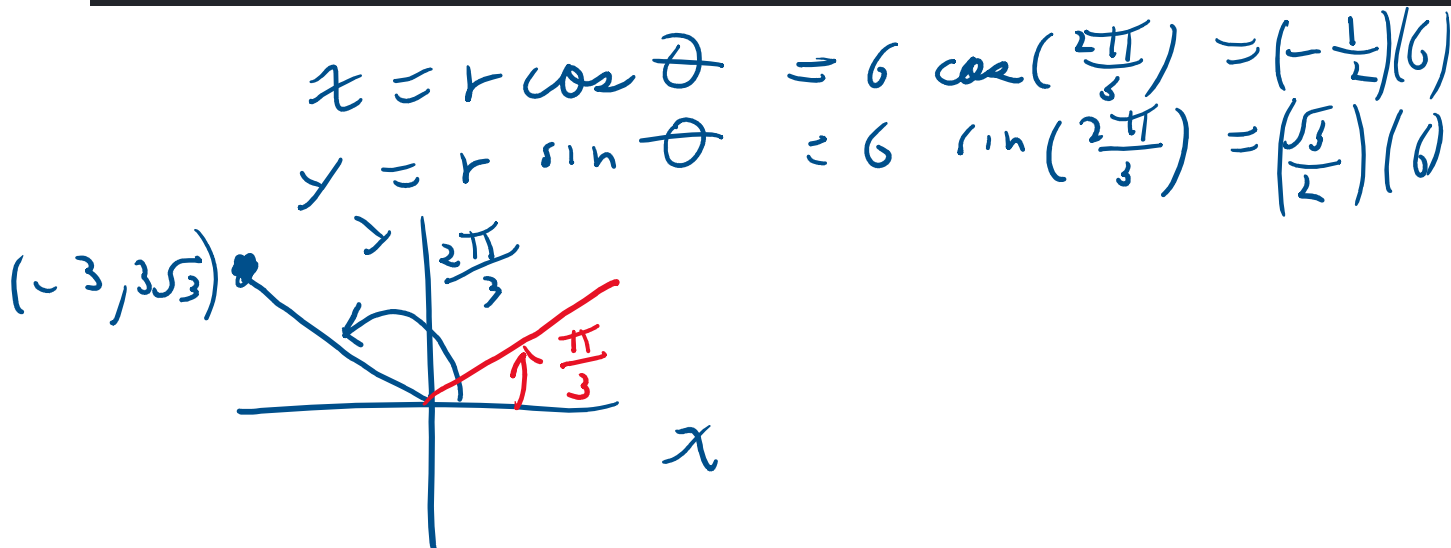 x = r cos θ = 6 cos(2π/3) = (-1/2)(6)
y = r sin θ = 6 sin(2π/3) = (√3/2)(6)
y
2π/3
(-3, 3√3)
π/3
x